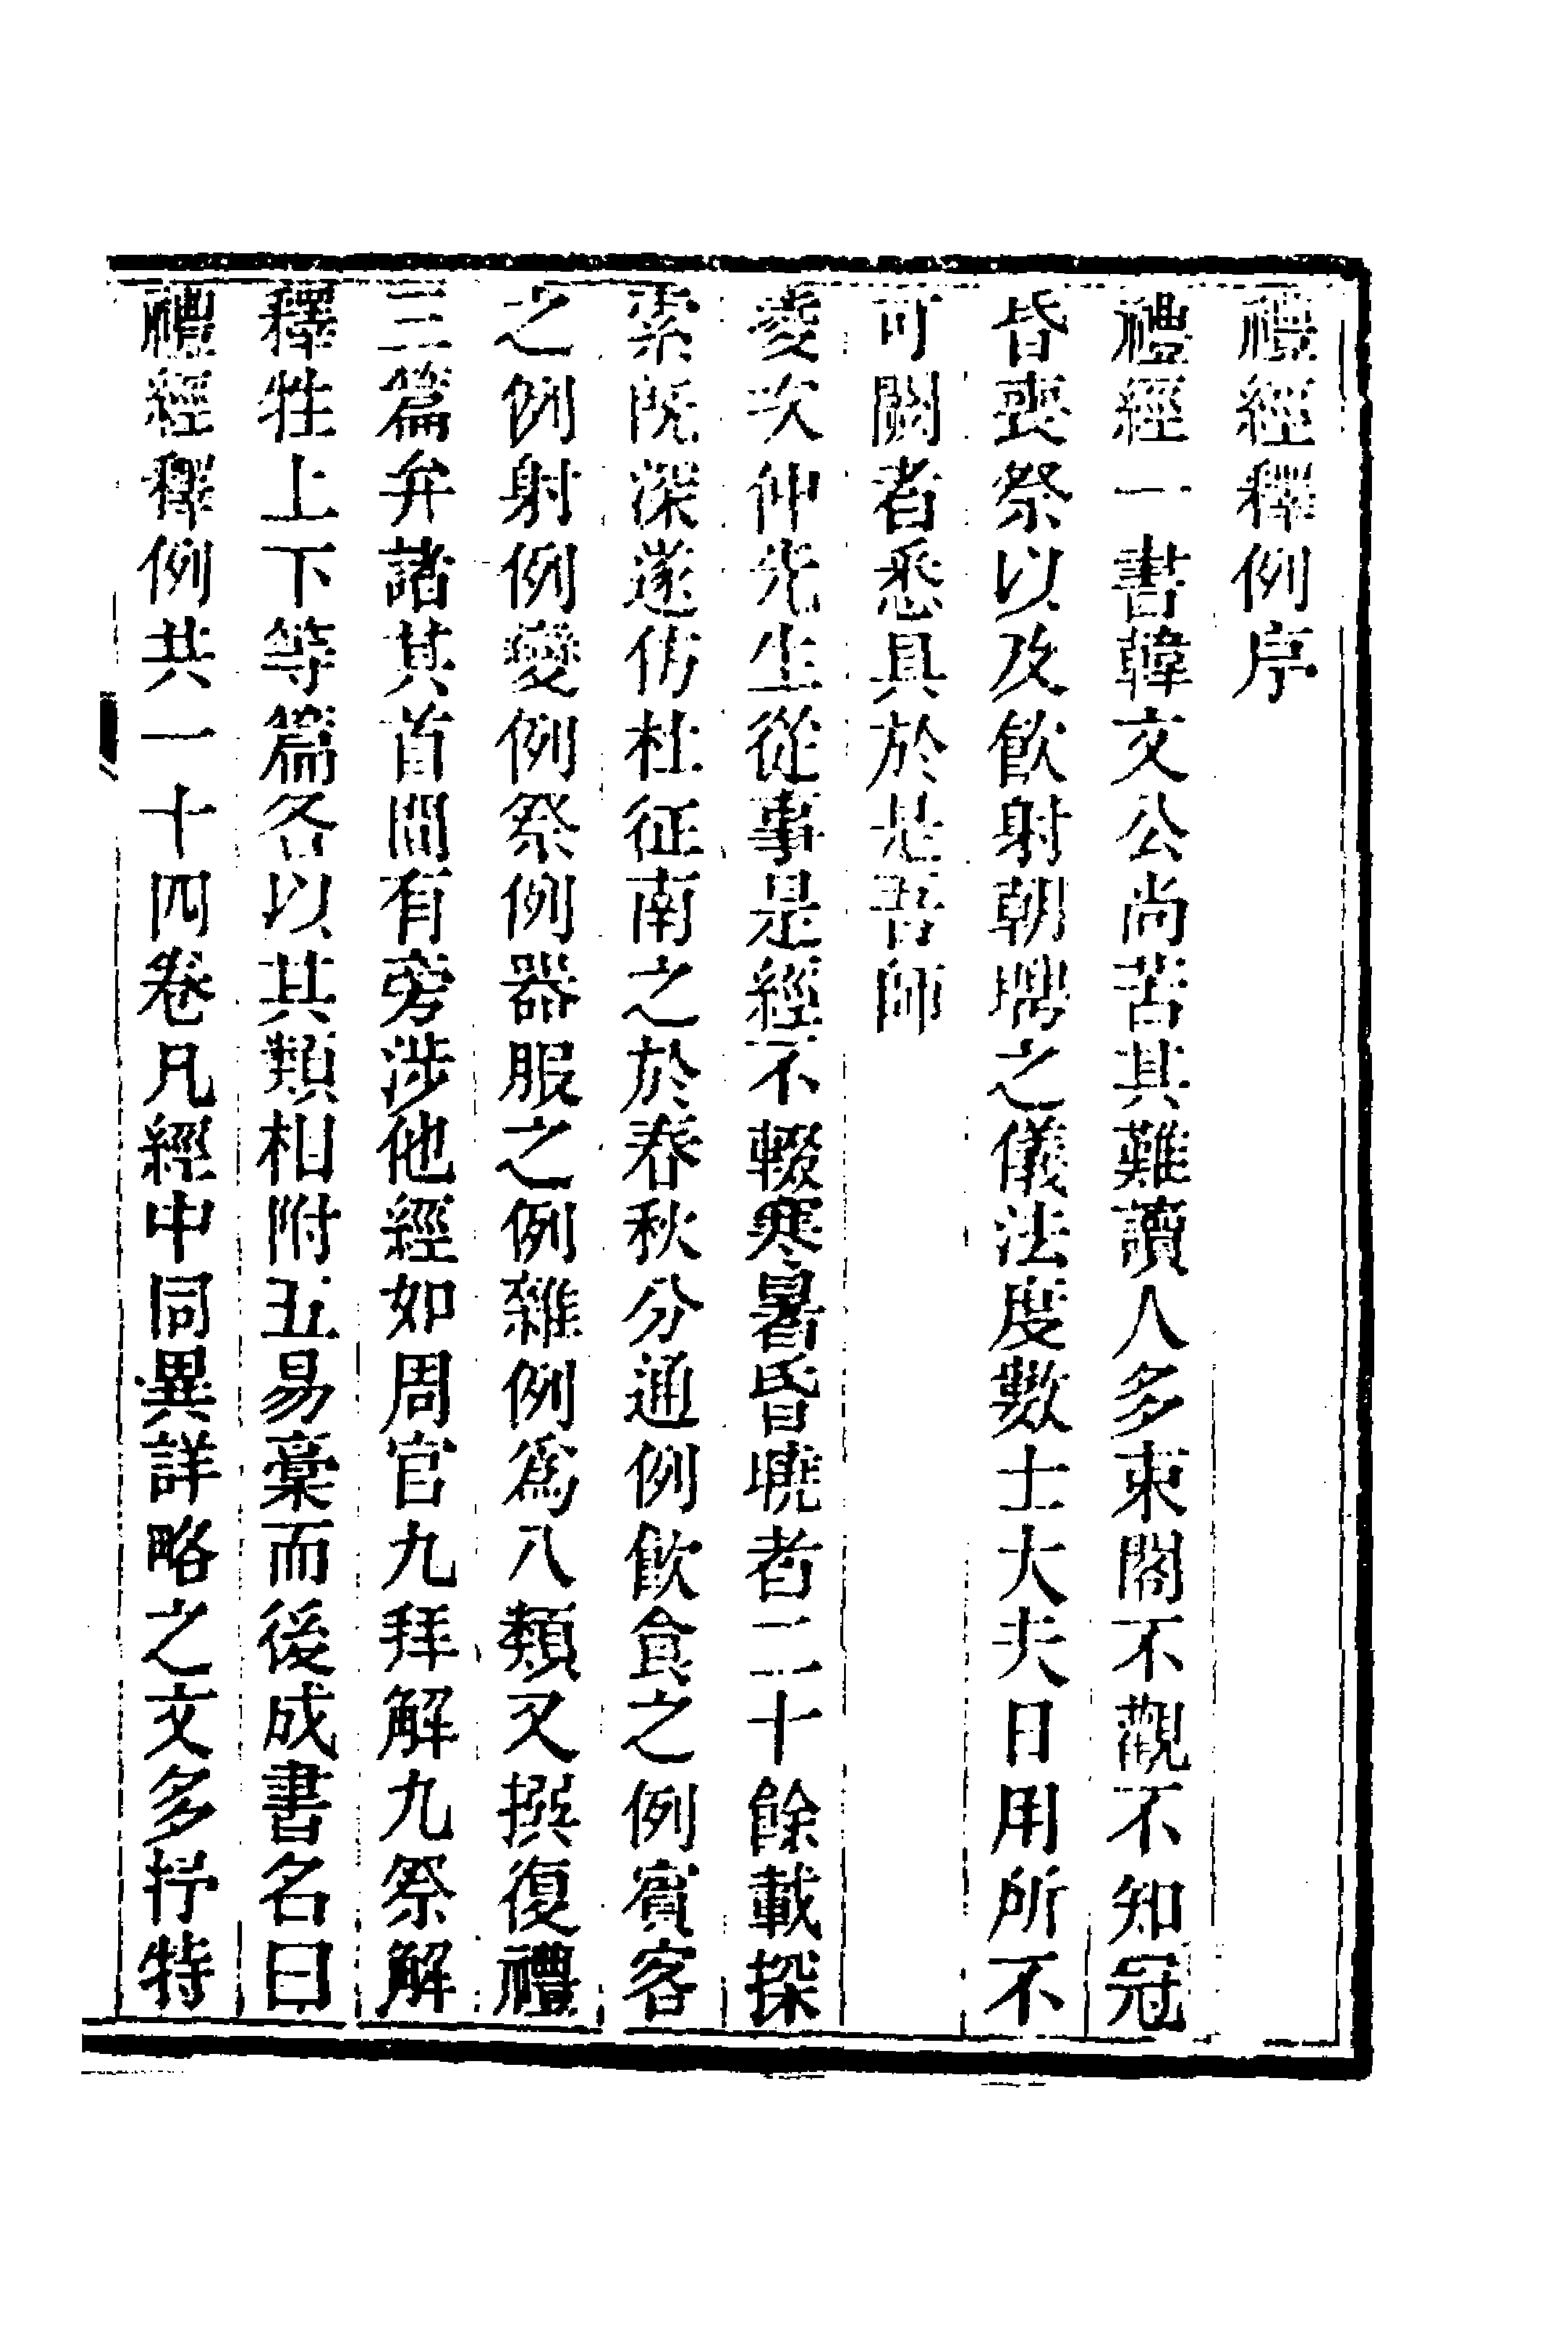 禮經釋例序
禮經一書韓文公尚苦其難讀人多束閣不觀不知冠
昏喪祭以及飲射朝聘之儀法度數士大夫日用所不
可闕者悉具於是吾師
凌次仲先生從事是經不輟寒暑昏曉者二十餘載探
索旣深遂仿杜征南之於春秋分通例飲食之例賓客
之例射例變例祭例器服之例雜例爲八類又撰復禮
三篇弁諸其首間有旁涉他經如周官九拜解九祭解
釋牲上下等篇各以其類相附五易稾而後成書名曰
禮經釋例共一十四卷凡經中同異詳略之文多抒特